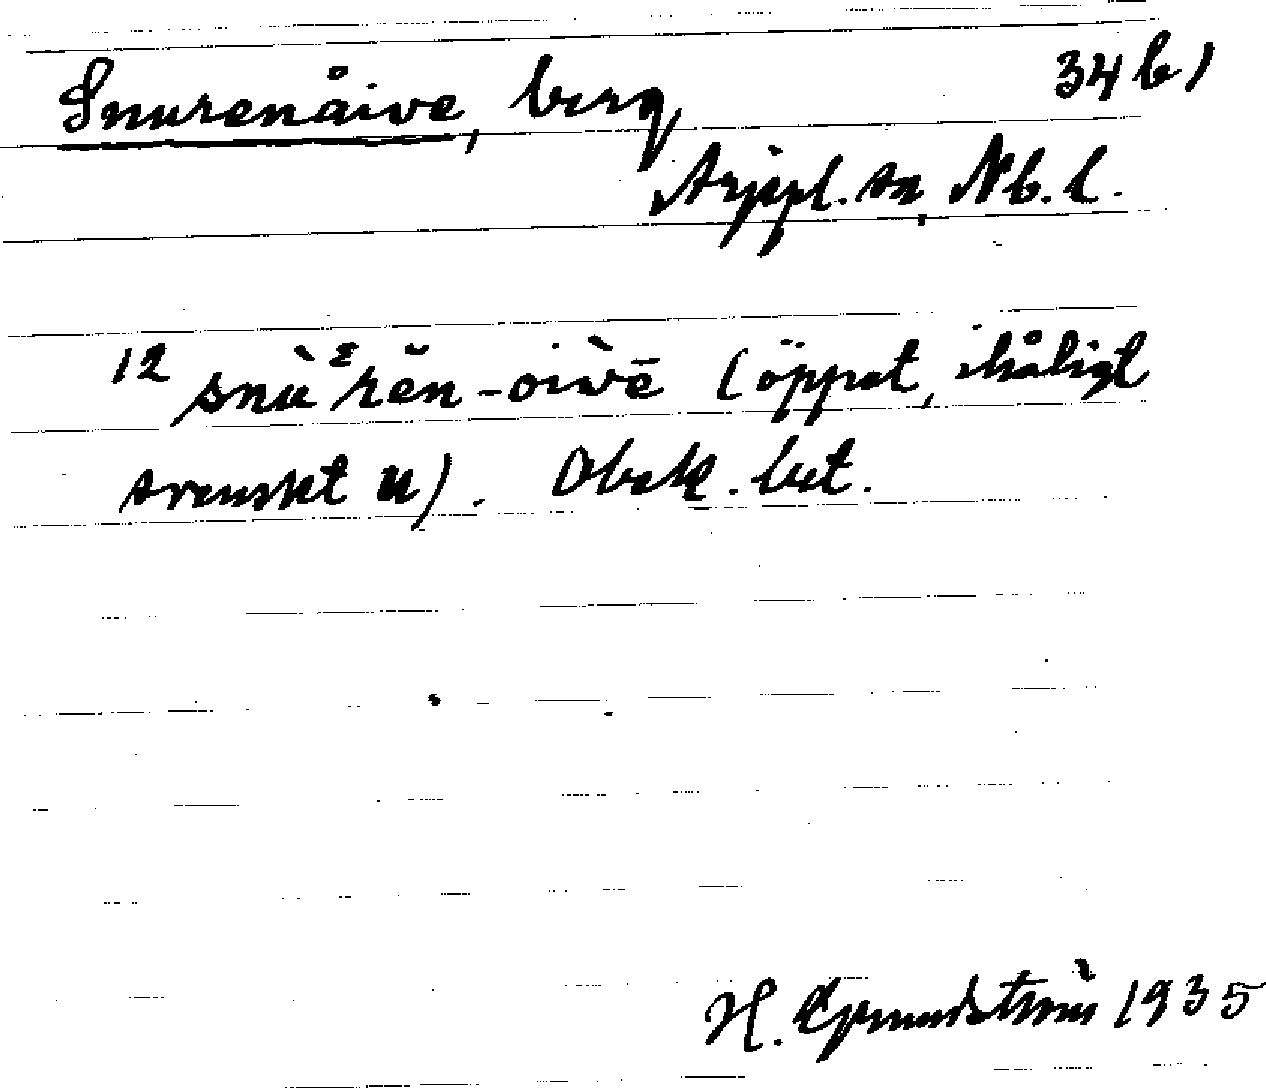 Snurenåive, berg 34 b)
Arjepl. sn, Nb. l.
12 snùᵌrĕn-oiẁē (öppet, ihåligt
svenskt u). Obek. bet.
H. Grundström 1935